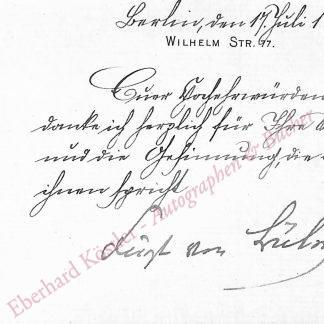 Berlin, den 17. Juli 1
WILHELM STR. 77.
Euer Hochehrwürden
danke ich herzlich für Ihre
und die Gesinnung, die
ihnen spricht
Fürst von Bülow
Eberhard Köstler - Autographen & Bücher